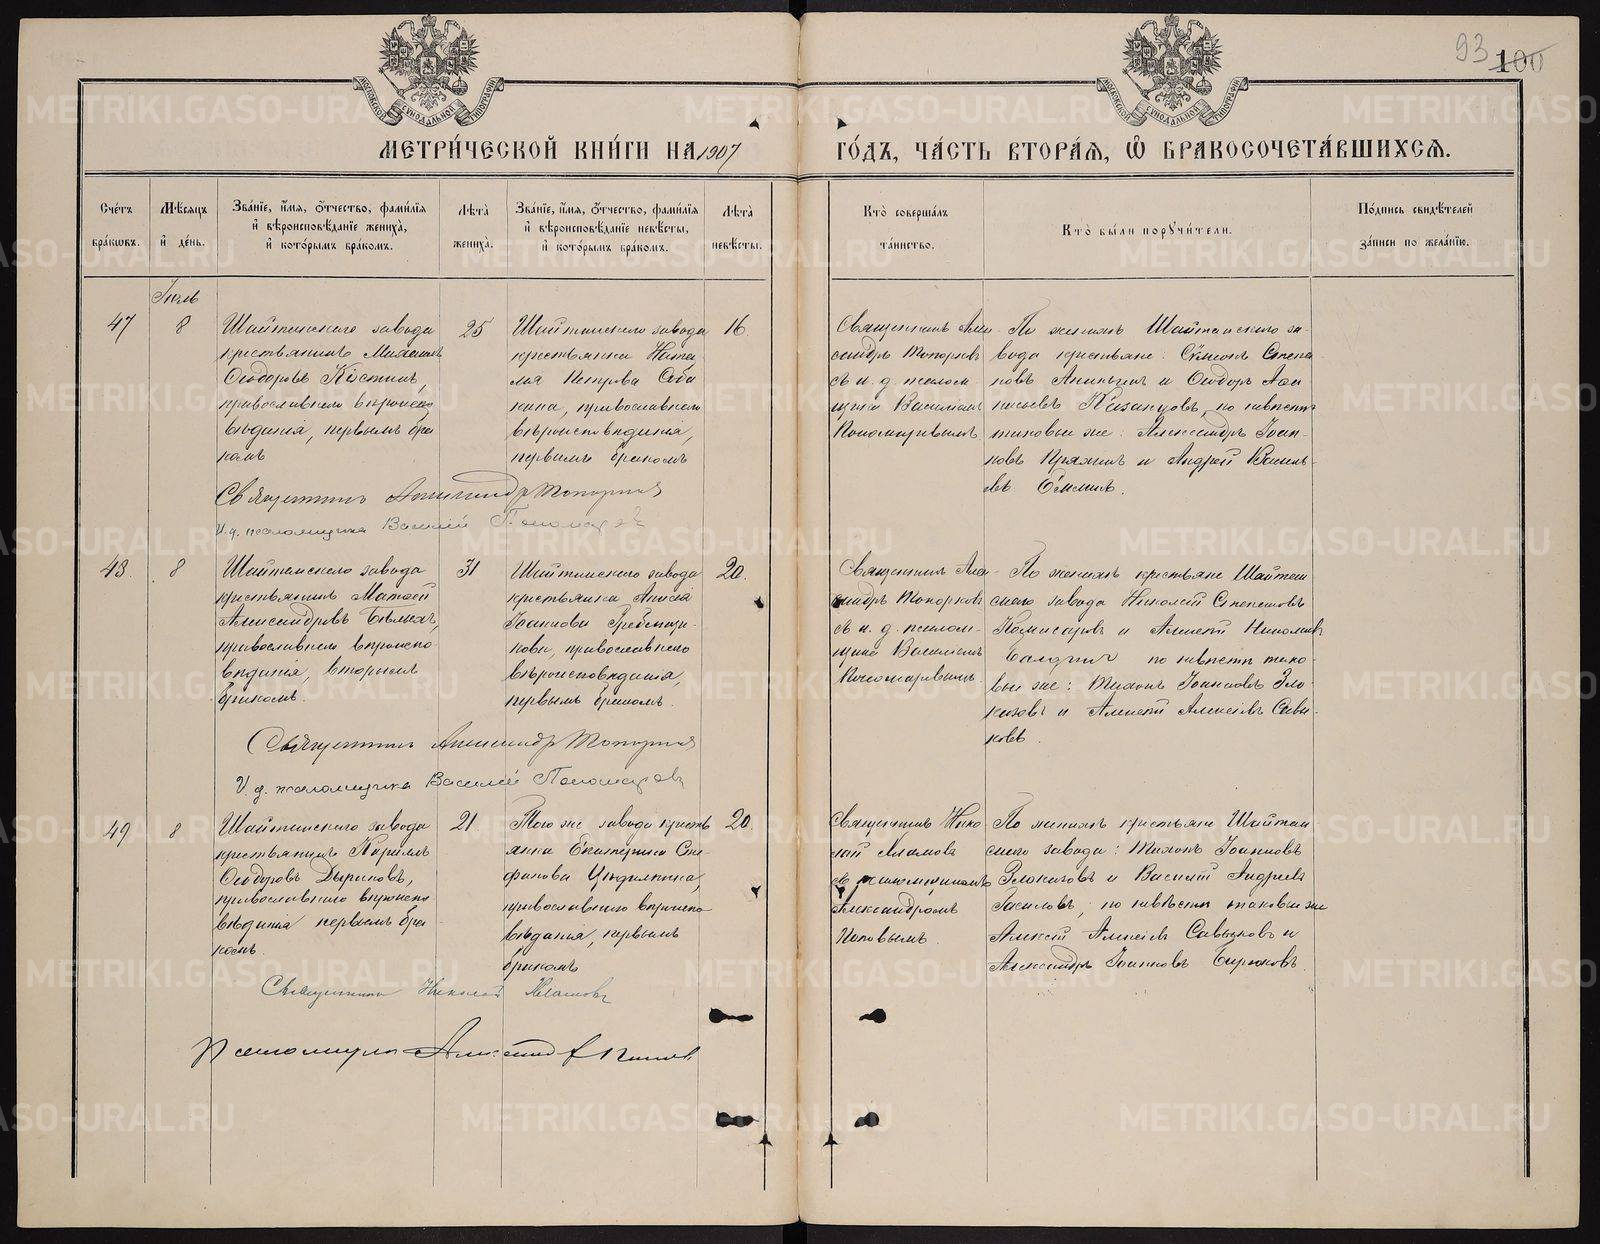 93 100
МЕТРИ́ЧЕСКОЙ КНИ́ГИ НА 1907 ГО́ДЪ, ЧА́СТЬ ВТОРА́Я, Ѡ БРАКОСОЧЕТА́ВШИХСЯ.
Сче́тъ бра́кѡвъ.
Мѣ́сяцъ и́ де́нь.
Зва́нїе, и́мя, ѻ́тчество, фами́лїя
и́ вѣроисповѣ́данїе жениха̀,
и́ кото́рымъ бра́комъ.
Лѣта̀ жениха̀.
Зва́нїе, и́мя, ѻ́тчество, фами́лїя
и́ вѣроисповѣ́данїе невѣ́сты,
и́ кото́рымъ бра́комъ.
Лѣта̀ невѣ́сты.
Кто̀ соверша́лъ
та́инство.
Кто̀ бы́ли порꙋчи́тели.
По́дпись свидѣ́телей
за́писи по жела́нїю.
Іюль
47
8
Шайтанскаго завода
крестьянинъ Михаилъ
Ѳеодоровъ Костинъ,
православнаго вѣроиспо
вѣданія, первымъ бра
комъ
25
Шайтанскаго завода
крестьянка Ната
лья Петрова Соба
кина, православнаго
вѣроисповѣданія,
первымъ бракомъ
16
Священникъ Але
ксандръ Топорковъ
съ и. д. псалом
щика Василіемъ
Пономаревымъ
По женихѣ Шайтанскаго за-
вода крестьяне: Сѵмеонъ Степа
новъ и Ѳеодоръ Аѳа
насьевъ Казанцовъ, по невѣстѣ
таковые же: Александръ Іоан-
новъ Пряхинъ и Андрей Василь-
евъ
Священникъ Александръ Топорковъ
И.д. псаломщика Василій Пономаревъ
48.
8
Шайтанскаго завода
крестьянинъ Матѳей
Александровъ
православнаго вѣроиспо-
вѣданія, вторымъ
бракомъ.
31
Шайтанскаго завода
крестьянка Анисія
Іоаннова Гребенщи-
кова, православнаго
вѣроисповѣданія,
первымъ бракомъ.
20.
Священникъ Але-
ксандръ Топорковъ
съ и. д. псалом-
щика Василіемъ
Пономаревымъ.
По женихѣ крестьяне Шайтан
скаго завода Николай Степановъ
Комисаровъ и Алексѣй Николаевъ
по невѣстѣ тако-
вые же: Тихонъ Іоанновъ Зло-
казовъ и Алексѣй Алексѣевъ Савы-
ковъ.
Священникъ Александръ Топорковъ
И. д. псаломщика Василій Пономаревъ
49
8
Шайтанскаго завода
крестьянинъ Кириллъ
Ѳеодоровъ Дыриновъ,
православнаго вѣроиспо
вѣданія первымъ бра-
комъ.
21
Того же завода кресть
янка Екатерина Сте-
фанова
православнаго вѣроиспо
вѣданія, первымъ
бракомъ
20.
Священникъ Нико
лай
съ псаломщикомъ
Александромъ
Поповымъ.
По женихѣ крестьяне Шайтан
скаго завода: Тихонъ Іоанновъ
Злоказовъ и Василій Андреевъ
Гасиловъ, по невѣстѣ таковые же
Алексѣй Алексѣевъ Савыковъ и
Александръ Іоанновъ Бирюковъ.
Священникъ Николай
Псаломщикъ Александръ Поповъ
METRIKI.GASO-URAL.RU